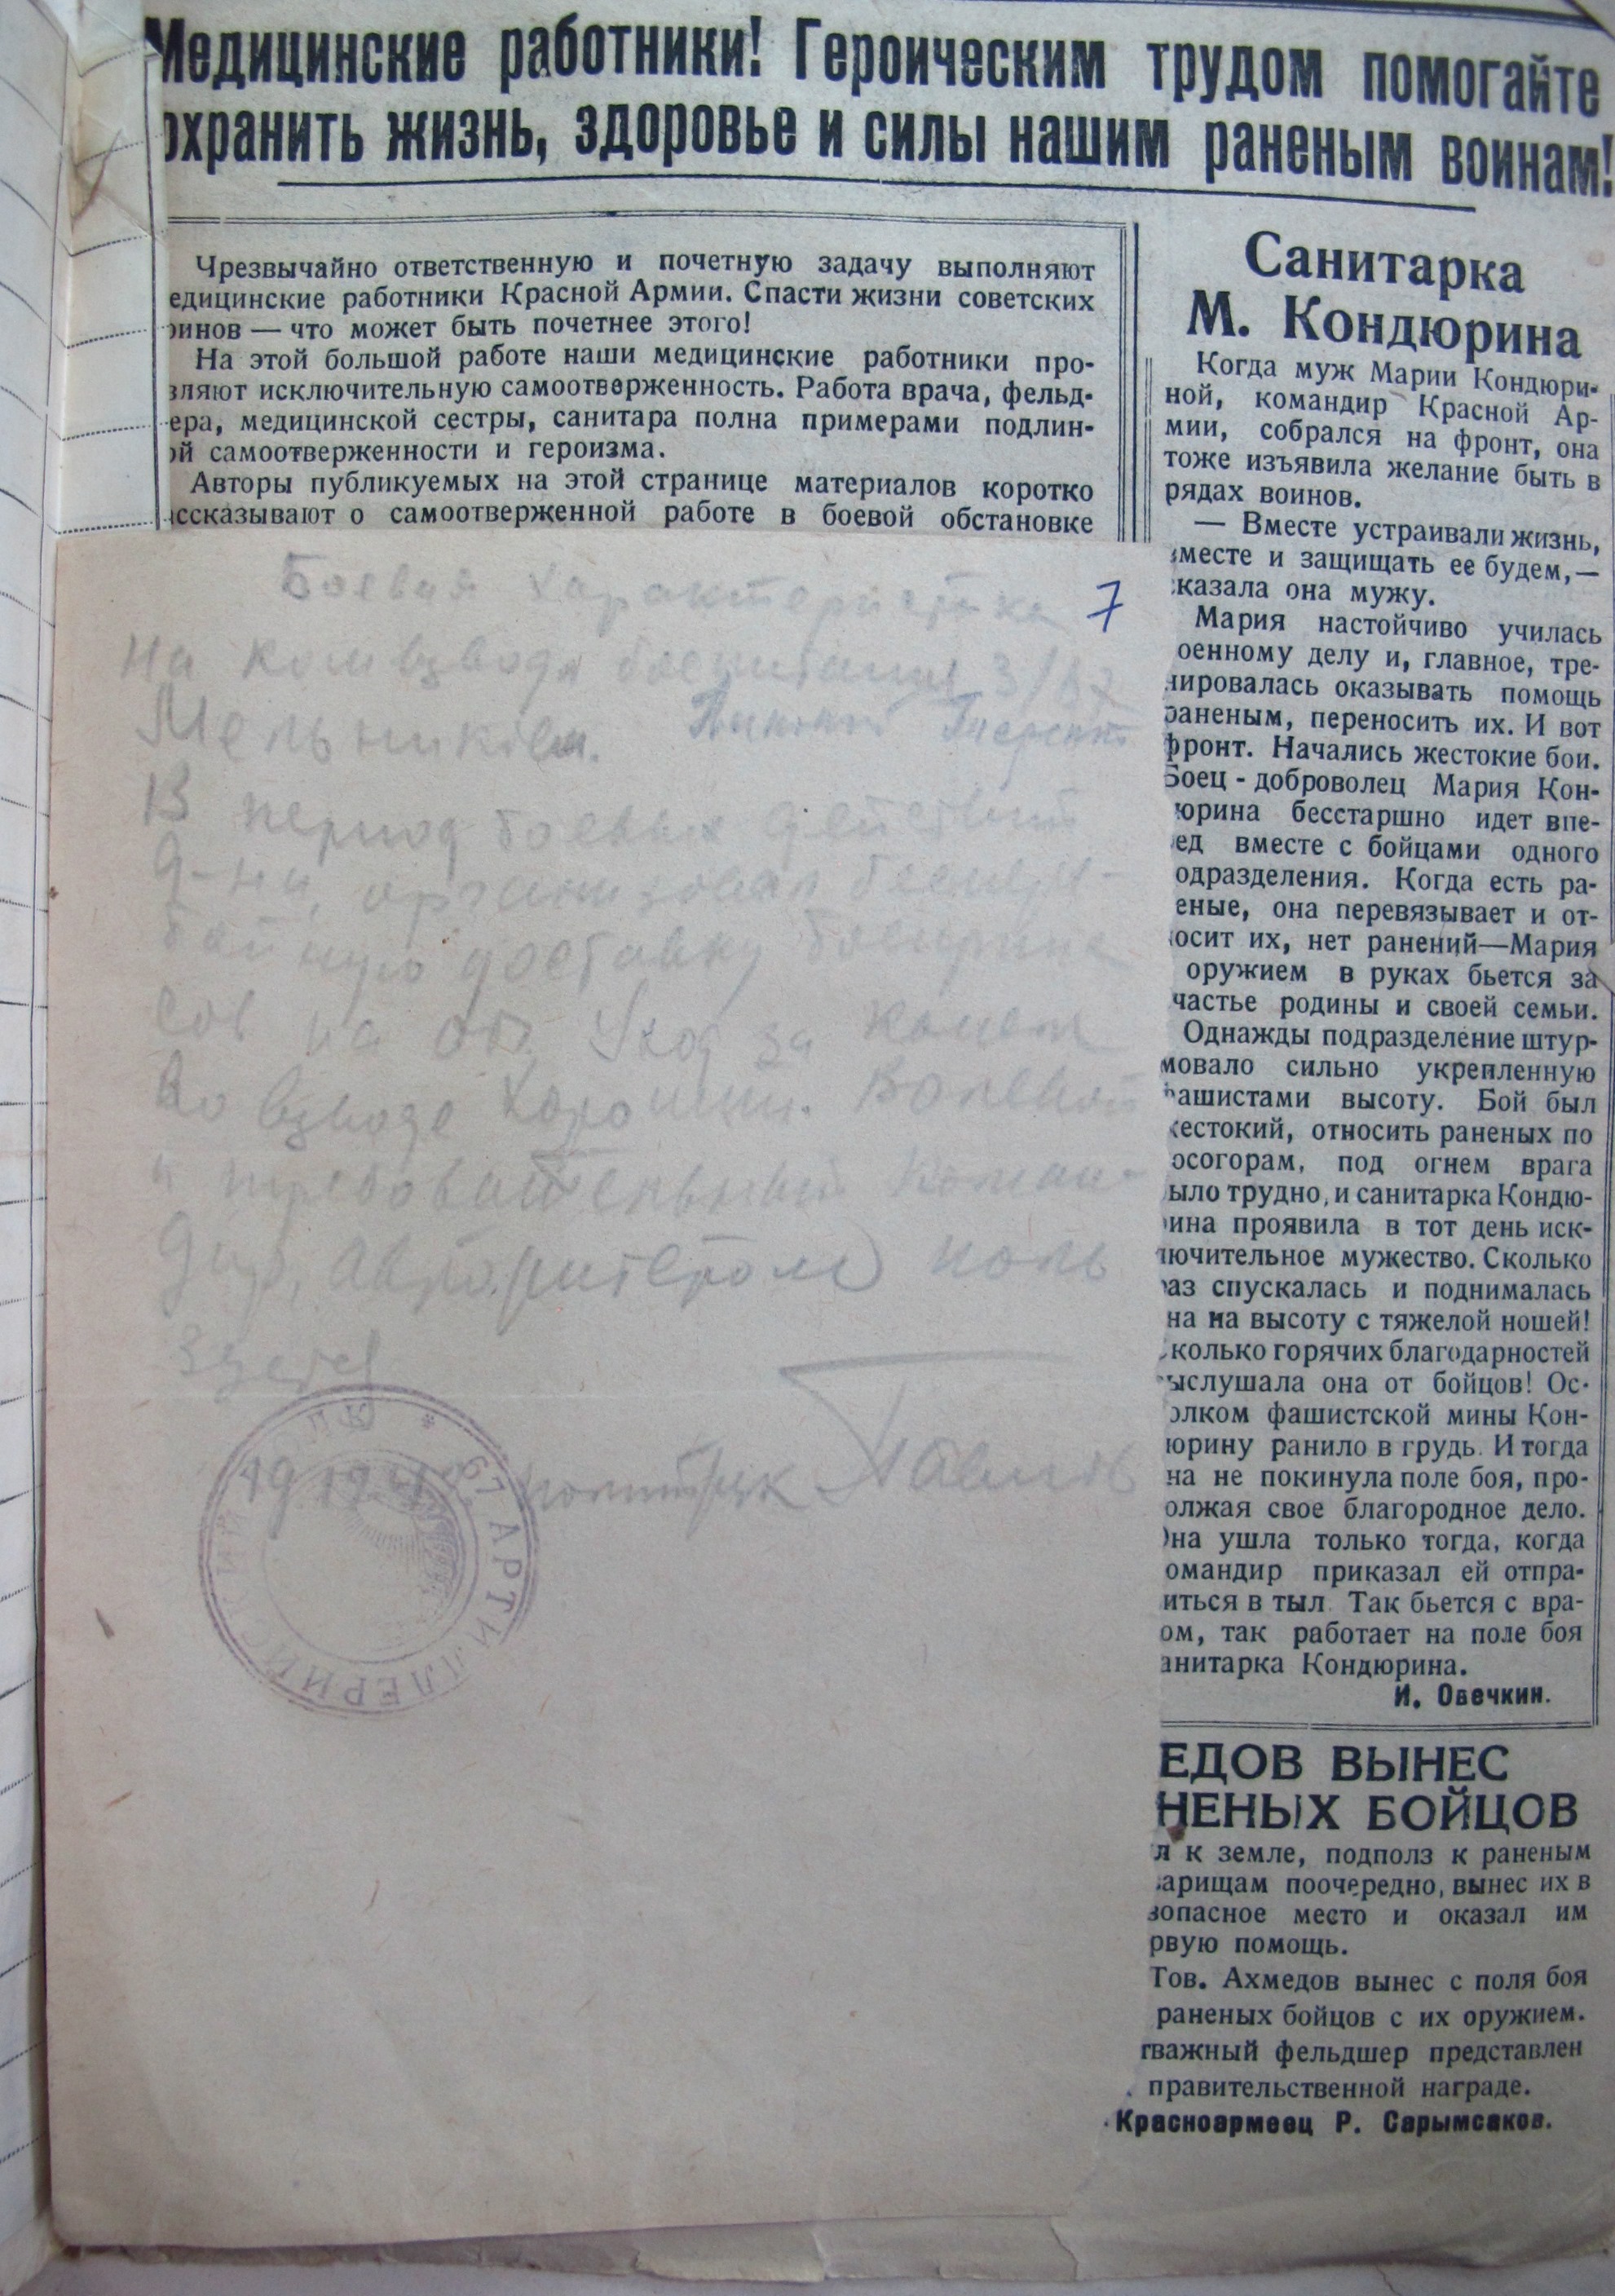 Медицинские работники! Героическим трудом помогайте
охранить жизнь, здоровье и силы нашим раненым воинам!
Чрезвычайно ответственную и почетную задачу выполняют
едицинские работники Красной Армии. Спасти жизни советских
оинов — что может быть почетнее этого!
На этой большой работе наши медицинские работники про-
вляют исключительную самоотверженность. Работа врача, фельд-
ера, медицинской сестры, санитара полна примерами подлин-
ой самоотверженности и героизма.
Авторы публикуемых на этой странице материалов коротко
ассказывают о самоотверженной работе в боевой обстановке
Боевая характеристика
7
на комвзвода боепитания 3/67
Мельников
В период боевых действий
д-на, организовал беспере-
бойную доставку боеприпа
сов на ОП. Уход за конем
во взводе хороший. Волевой
и требовательный коман-
дир, авторитетом поль
зуется
19 политрук
67 АРТИЛЛЕРИЙС ИЙ ПОЛК *
Санитарка
М. Кондюрина
Когда муж Марии Кондюри-
ной, командир Красной Ар-
мии, собрался на фронт, она
тоже изъявила желание быть в
рядах воинов.
— Вместе устраивали жизнь,
вместе и защищать ее будем,—
сказала она мужу.
Мария настойчиво училась
оенному делу и, главное, тре-
нировалась оказывать помощь
раненым, переносить их. И вот
фронт. Начались жестокие бои.
Боец - доброволец Мария Кон-
юрина бесстаршно идет впе-
ед вместе с бойцами одного
одразделения. Когда есть ра-
еные, она перевязывает и от-
носит их, нет ранений—Мария
оружием в руках бьется за
частье родины и своей семьи.
Однажды подразделение штур-
мовало сильно укрепленную
фашистами высоту. Бой был
жестокий, относить раненых по
осогорам, под огнем врага
ыло трудно, и санитарка Кондю-
рина проявила в тот день иск-
лючительное мужество. Сколько
раз спускалась и поднималась
на на высоту с тяжелой ношей!
Сколько горячих благодарностей
выслушала она от бойцов! Ос-
олком фашистской мины Кон-
юрину ранило в грудь. И тогда
на не покинула поле боя, про-
олжая свое благородное дело.
Она ушла только тогда, когда
омандир приказал ей отпра-
иться в тыл. Так бьется с вра-
ом, так работает на поле боя
анитарка Кондюрина.
И. Овечкин.
ЕДОВ ВЫНЕС
НЕНЫХ БОЙЦОВ
л к земле, подполз к раненым
варищам поочередно, вынес их в
зопасное место и оказал им
рвую помощь.
Тов. Ахмедов вынес с поля боя
раненых бойцов с их оружием.
тважный фельдшер представлен
правительственной награде.
Красноармеец Р. Сарымсаков.